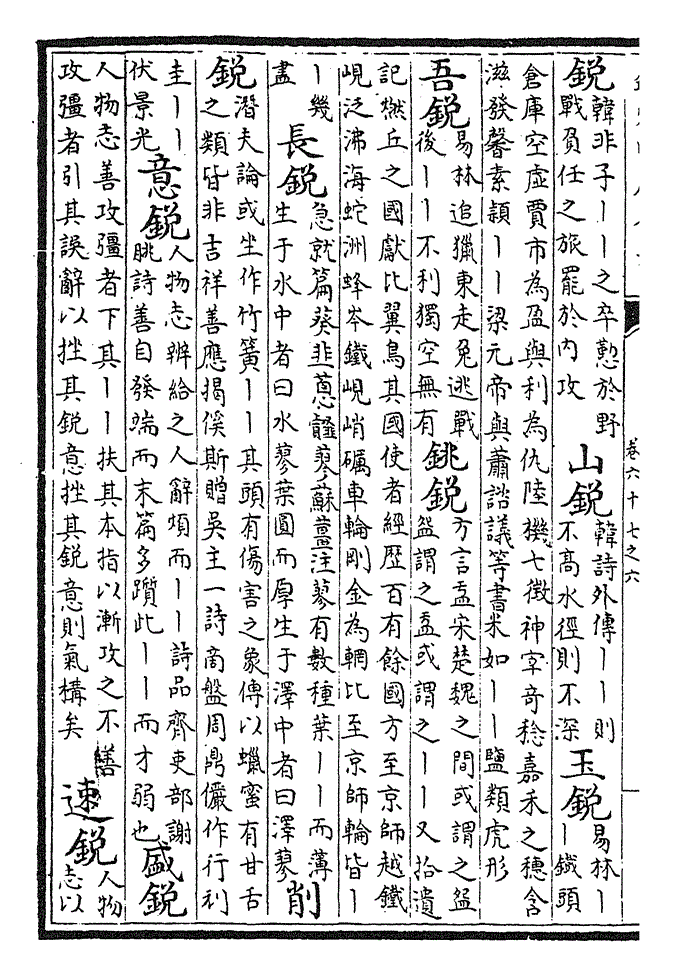 銳韓非子丨丨之卒懃於野
戰負任之旅罷於內攻
山銳韓詩外傳丨丨則
不高水徑則不深
玉銳易林丨
丨鐵頭
倉庫空虛賈市為盈與利為仇陸機七徵神宰奇稔嘉禾之穗含
滋發馨素穎丨丨梁元帝與蕭諮議等書米如丨丨鹽類虎形
吾銳易林追獵東走兔逃戰
後丨丨不利獨空無有
銚銳方言盂宋楚魏之間或謂之盌
盌謂之盂或謂之丨丨又拾遺
記燃丘之國獻比翼鳥其國使者經歷百有餘國方至京師越鐵
峴泛沸海蛇洲蜂岑鐵峴峭礪車輪剛金為輞比至京師輪皆丨
丨幾
盡
長銳急就篇葵韭蔥䪥蓼蘇薑注蓼有數種葉丨丨而薄
生于水中者曰水蓼葉圓而厚生于澤中者曰澤蓼
削
銳潛夫論或坐作竹簧丨丨其頭有傷害之象傳以蠟蜜有甘舌
之類皆非吉祥善應揭傒斯贈吳主一詩商盤周鼎儼作行利
圭丨丨
伏景光
意銳人物志辨給之人辭煩而丨丨詩品齊吏部謝
朓詩善自發端而末篇多躓此丨丨而才弱也
盛銳
人物志善攻彊者下其丨丨扶其本指以漸攻之不善
攻彊者引其誤辭以挫其銳意挫其銳意則氣構矣
速銳人物
志以
卷六十七之六